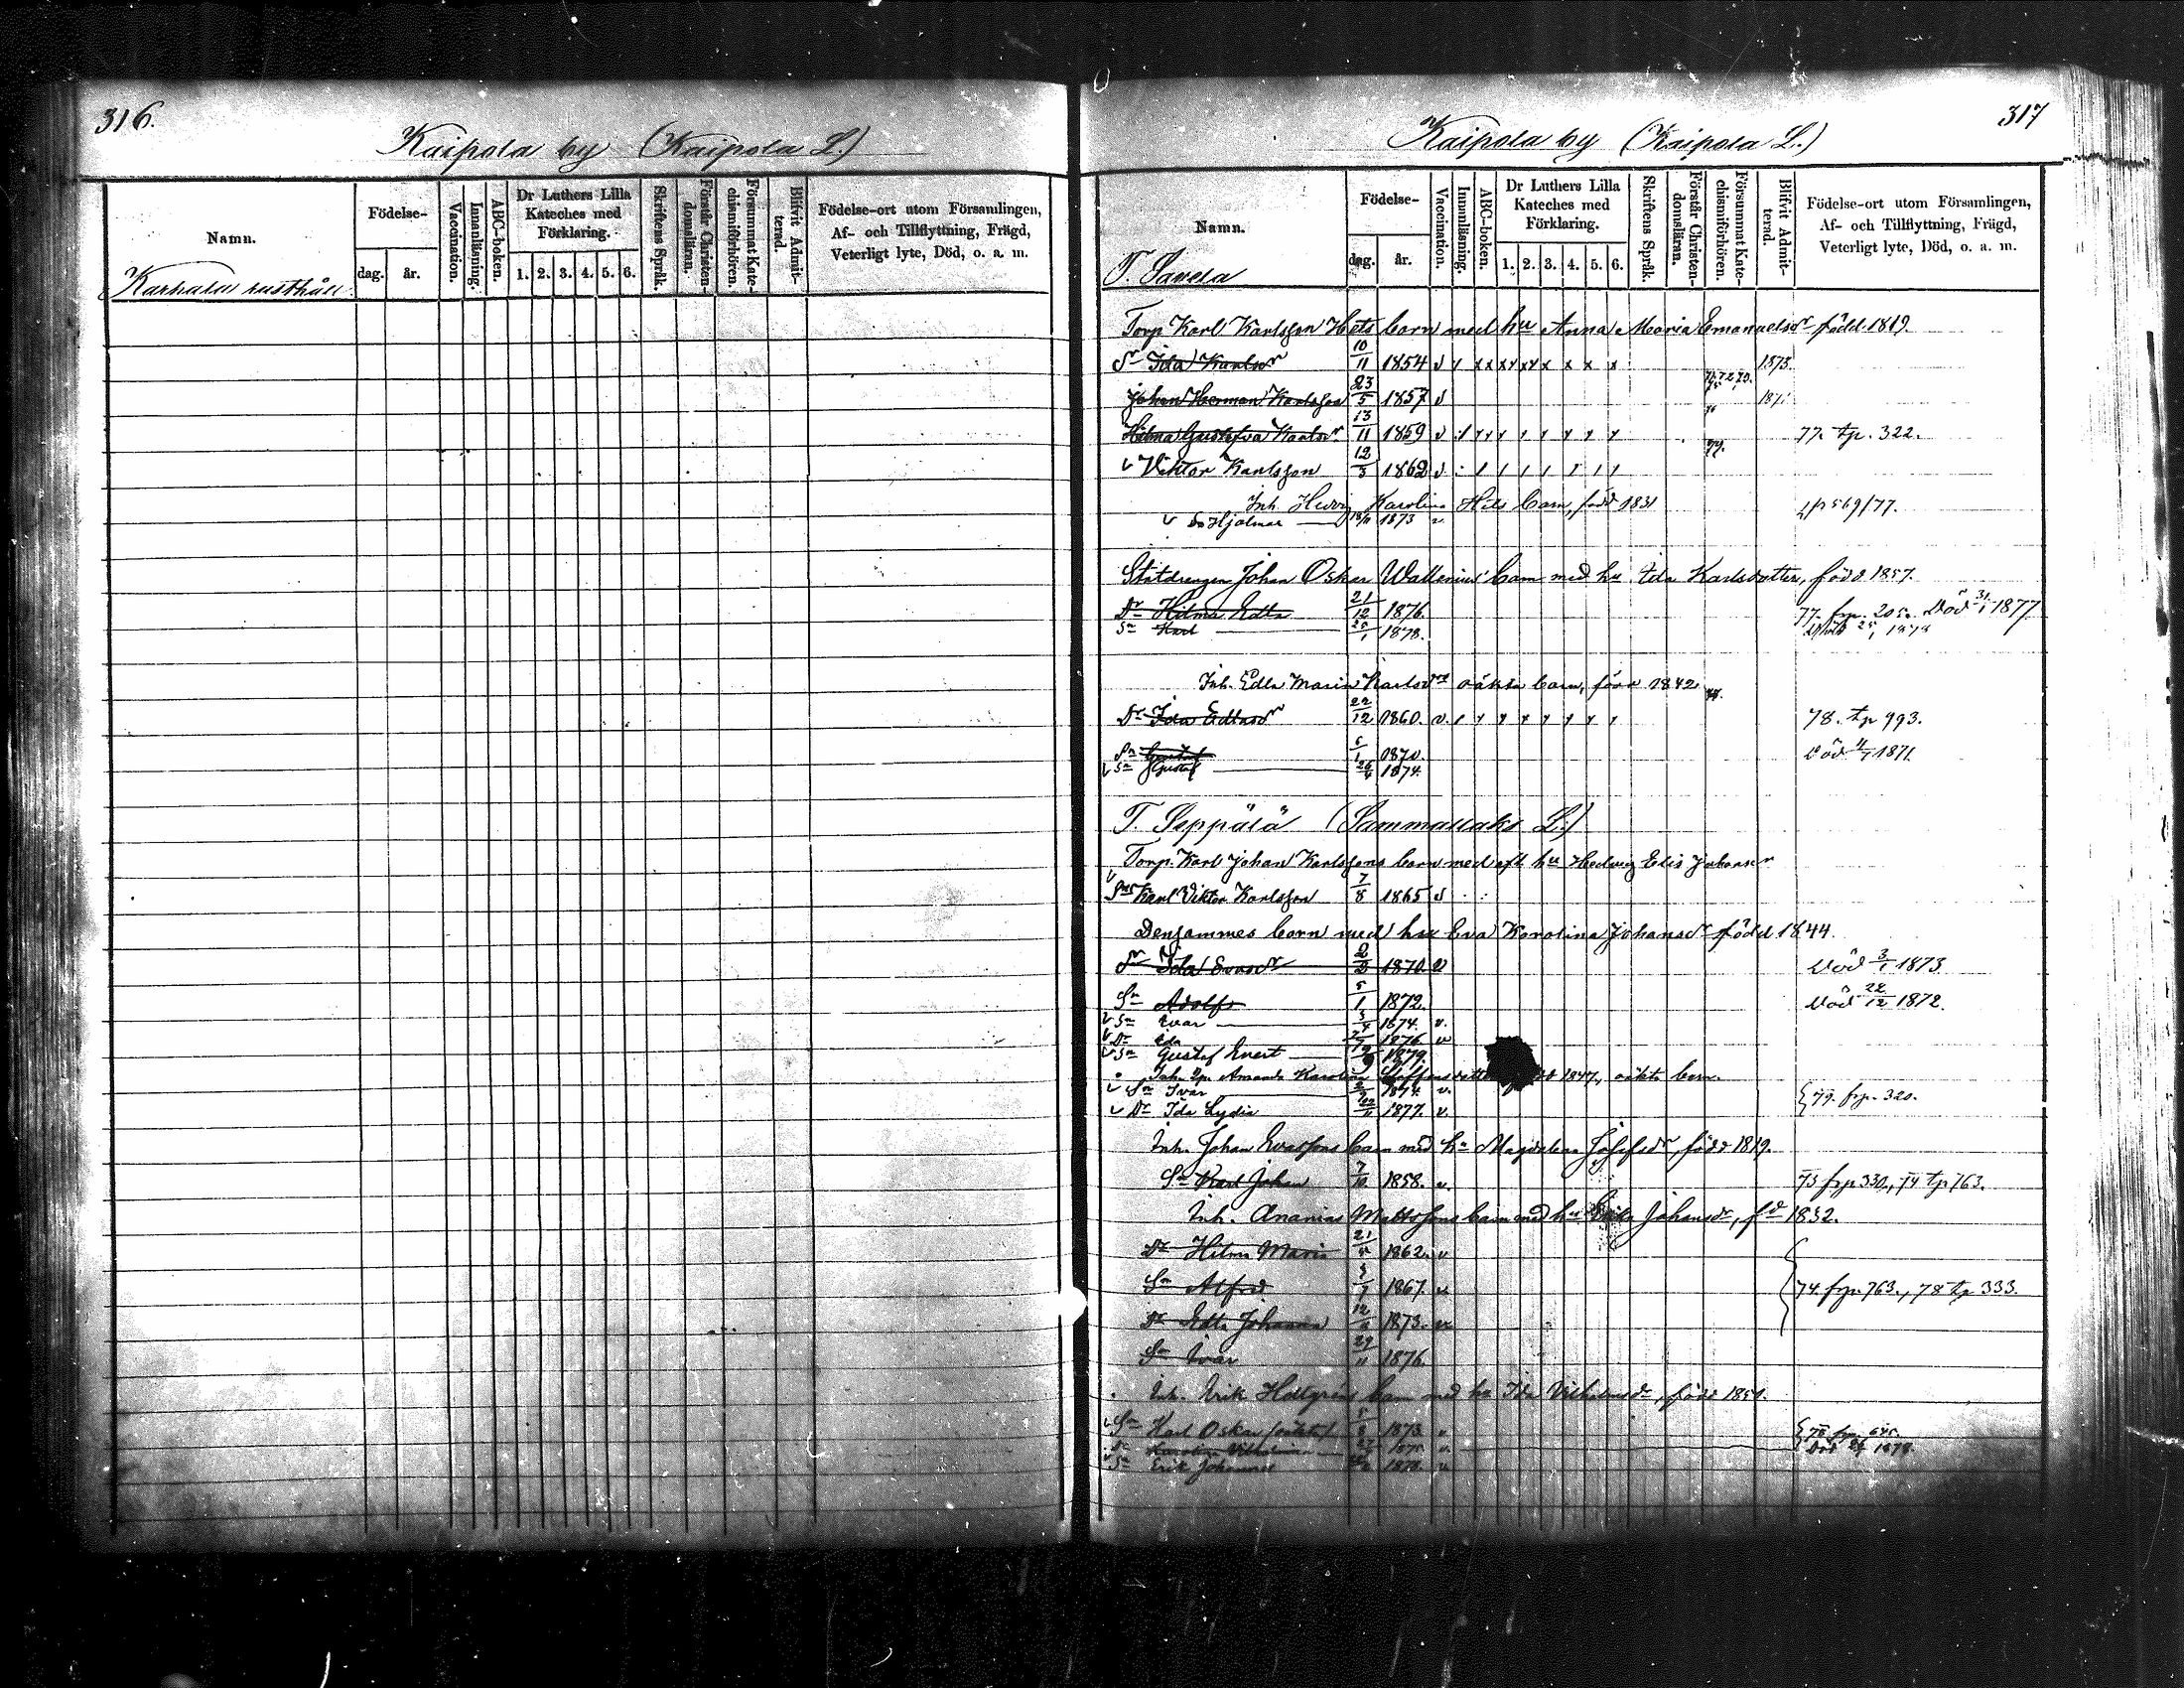 316.
Kaipola by (Kaipola L.)
Namn.
Födelse-
dag. år.
Vaccination.
Innanläsning.
ABC-boken.
Dr Luthers Lilla Kateches med Förklaring.
1. 2. 3. 4. 5. 6.
Skriftens Språk.
Förstår Christendomsläran.
Försummat Katechismiförhören.
Blifvit Admitterad.
Födelse-ort utom Församlingen,
Af- och Tillflyttning, Frägd,
Veterligt lyte, Död, o. a. m.
Karhala rusthåll
317
Kaipola by (Kaipola L.)
Namn.
Födelse-
dag. år.
Vaccination.
Innanläsning.
ABC-boken.
Dr Luthers Lilla Kateches med Förklaring.
1. 2. 3. 4. 5. 6.
Skriftens Språk.
Förstår Christendomsläran.
Försummat Katechismiförhören.
Blifvit Admitterad.
Födelse-ort utom Församlingen,
Af- och Tillflyttning, Frägd,
Veterligt lyte, Död, o. a. m.
T. Savela
Torp. Karl Karlsson Hets barn med hu Anna Maria Emanuelsdr född 1819.
Dr Ida Karlsdr 10/11 1854 v 1873.
Johan Herman Karlsson 23/5 1857 v
Hilma Gustafva Karlsdr 13/11 1859 v 77. tp. 322.
v Viktor Karlsson 12/3 1862 v
Inh. Hedvig Karolina Hets barn, född 1831
v Sn Hjalmar 1873 v. tp 569/77.
Statdrengen Johan Oskar Wallenius' barn med hu Ida Karlsdotter, född 1857.
Dr Hilma Edla 21/12 1876. 77. frp. 205. Död 31/1 1877
Sn Karl 25/1 1878.
Inh. Edla Maria Karlsdrs oäkta barn, född 1842
Dr Ida Edlasdr 22/12 1860. v. 78. tp 993.
Sn Gustaf 5/1 1870. Död 4/7 1871.
v Sn Gustaf 26/4 1874.
T. Seppälä (Sammallaks L.)
Torp. Karl Johan Karlssons barn med afl hu Hedvig Elis Johansdr
v Sn Karl Viktor Karlsson 7/8 1865 v
Densammes barn med hu Eva Karolina Johansdr född 1844.
Dr Ida Evasdr 2/2 1870 v Död 3/1 1873
Sn Adolf 5/1 1872. Död 22/12 1872.
v Sn Ivar 3/4 1874. v.
v Dr Ida 1876 v
v Sn Gustaf Evert 1879.
Inh. Amanda Karolina Staffansdotter 1847, oäkta barn.
v Sn Ivar 1874. v.
v Dr Ida Lydia 1877. v. 79. frp. 320.
Inh. Johan Evassons barn med hu Magdalena Josefsdr, född 1819.
Sn Karl Johan 7/10 1858. v. 73 frp 330., 74 tp 763.
Inh. Ananias Mattssons barn med hu Johansdr, fd 1832.
Dr Hilma Maria 1862. v
Sn Alfred 1867. v 74. frp. 763., 78 tp 333.
Dr Edla Johanna 1873. v
Sn Ivar 29/11 1876.
Inh. Erik Hellgrens barn med hu Ida Vilhelmsdr, född 1851.
v Sn Karl Oskar (oäkta) 1873. v
Dr Karolina Vilhelmina 1875. v.
v Sn Erik Johannes 1878. v